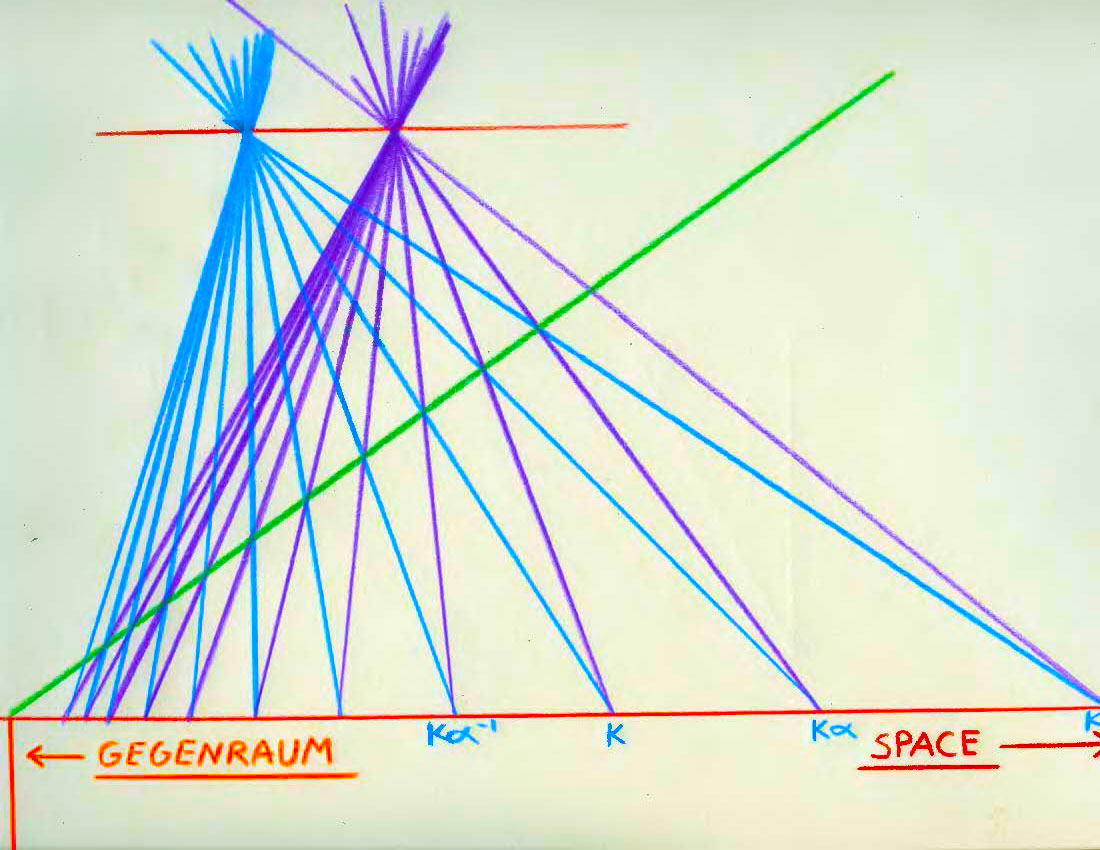 Kα⁻¹ K Kα K
← GEGENRAUM SPACE →